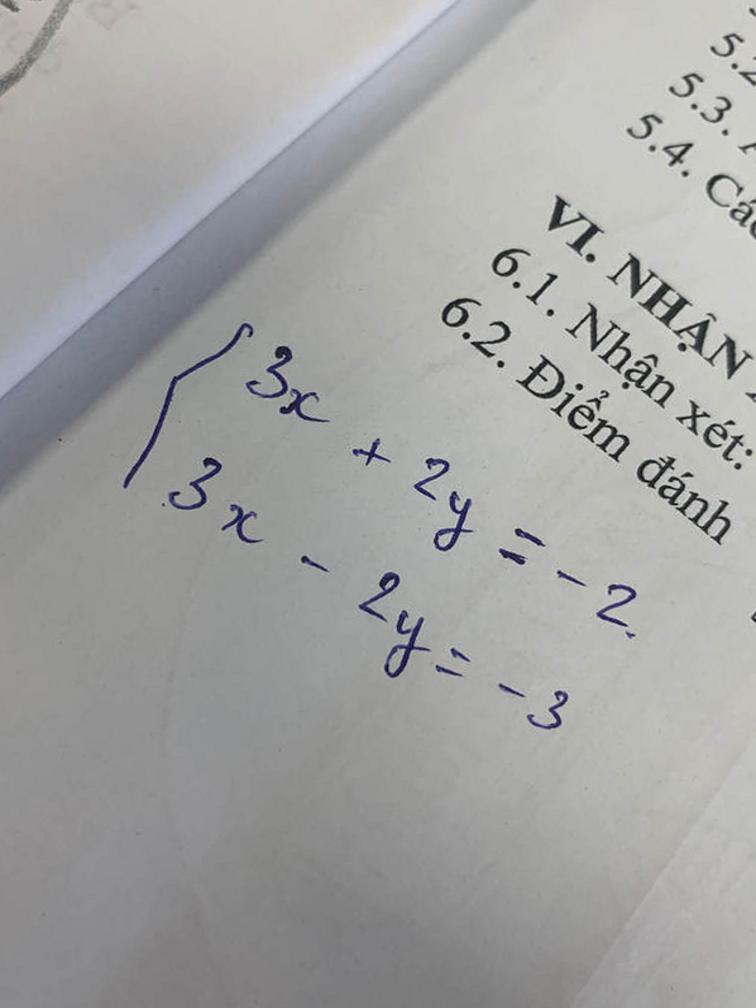 5.2
5.3.
5.4. Các
VI. NHẬN
6.1. Nhận xét:
6.2. Điểm đánh
3x + 2y = -2.
3x - 2y = -3